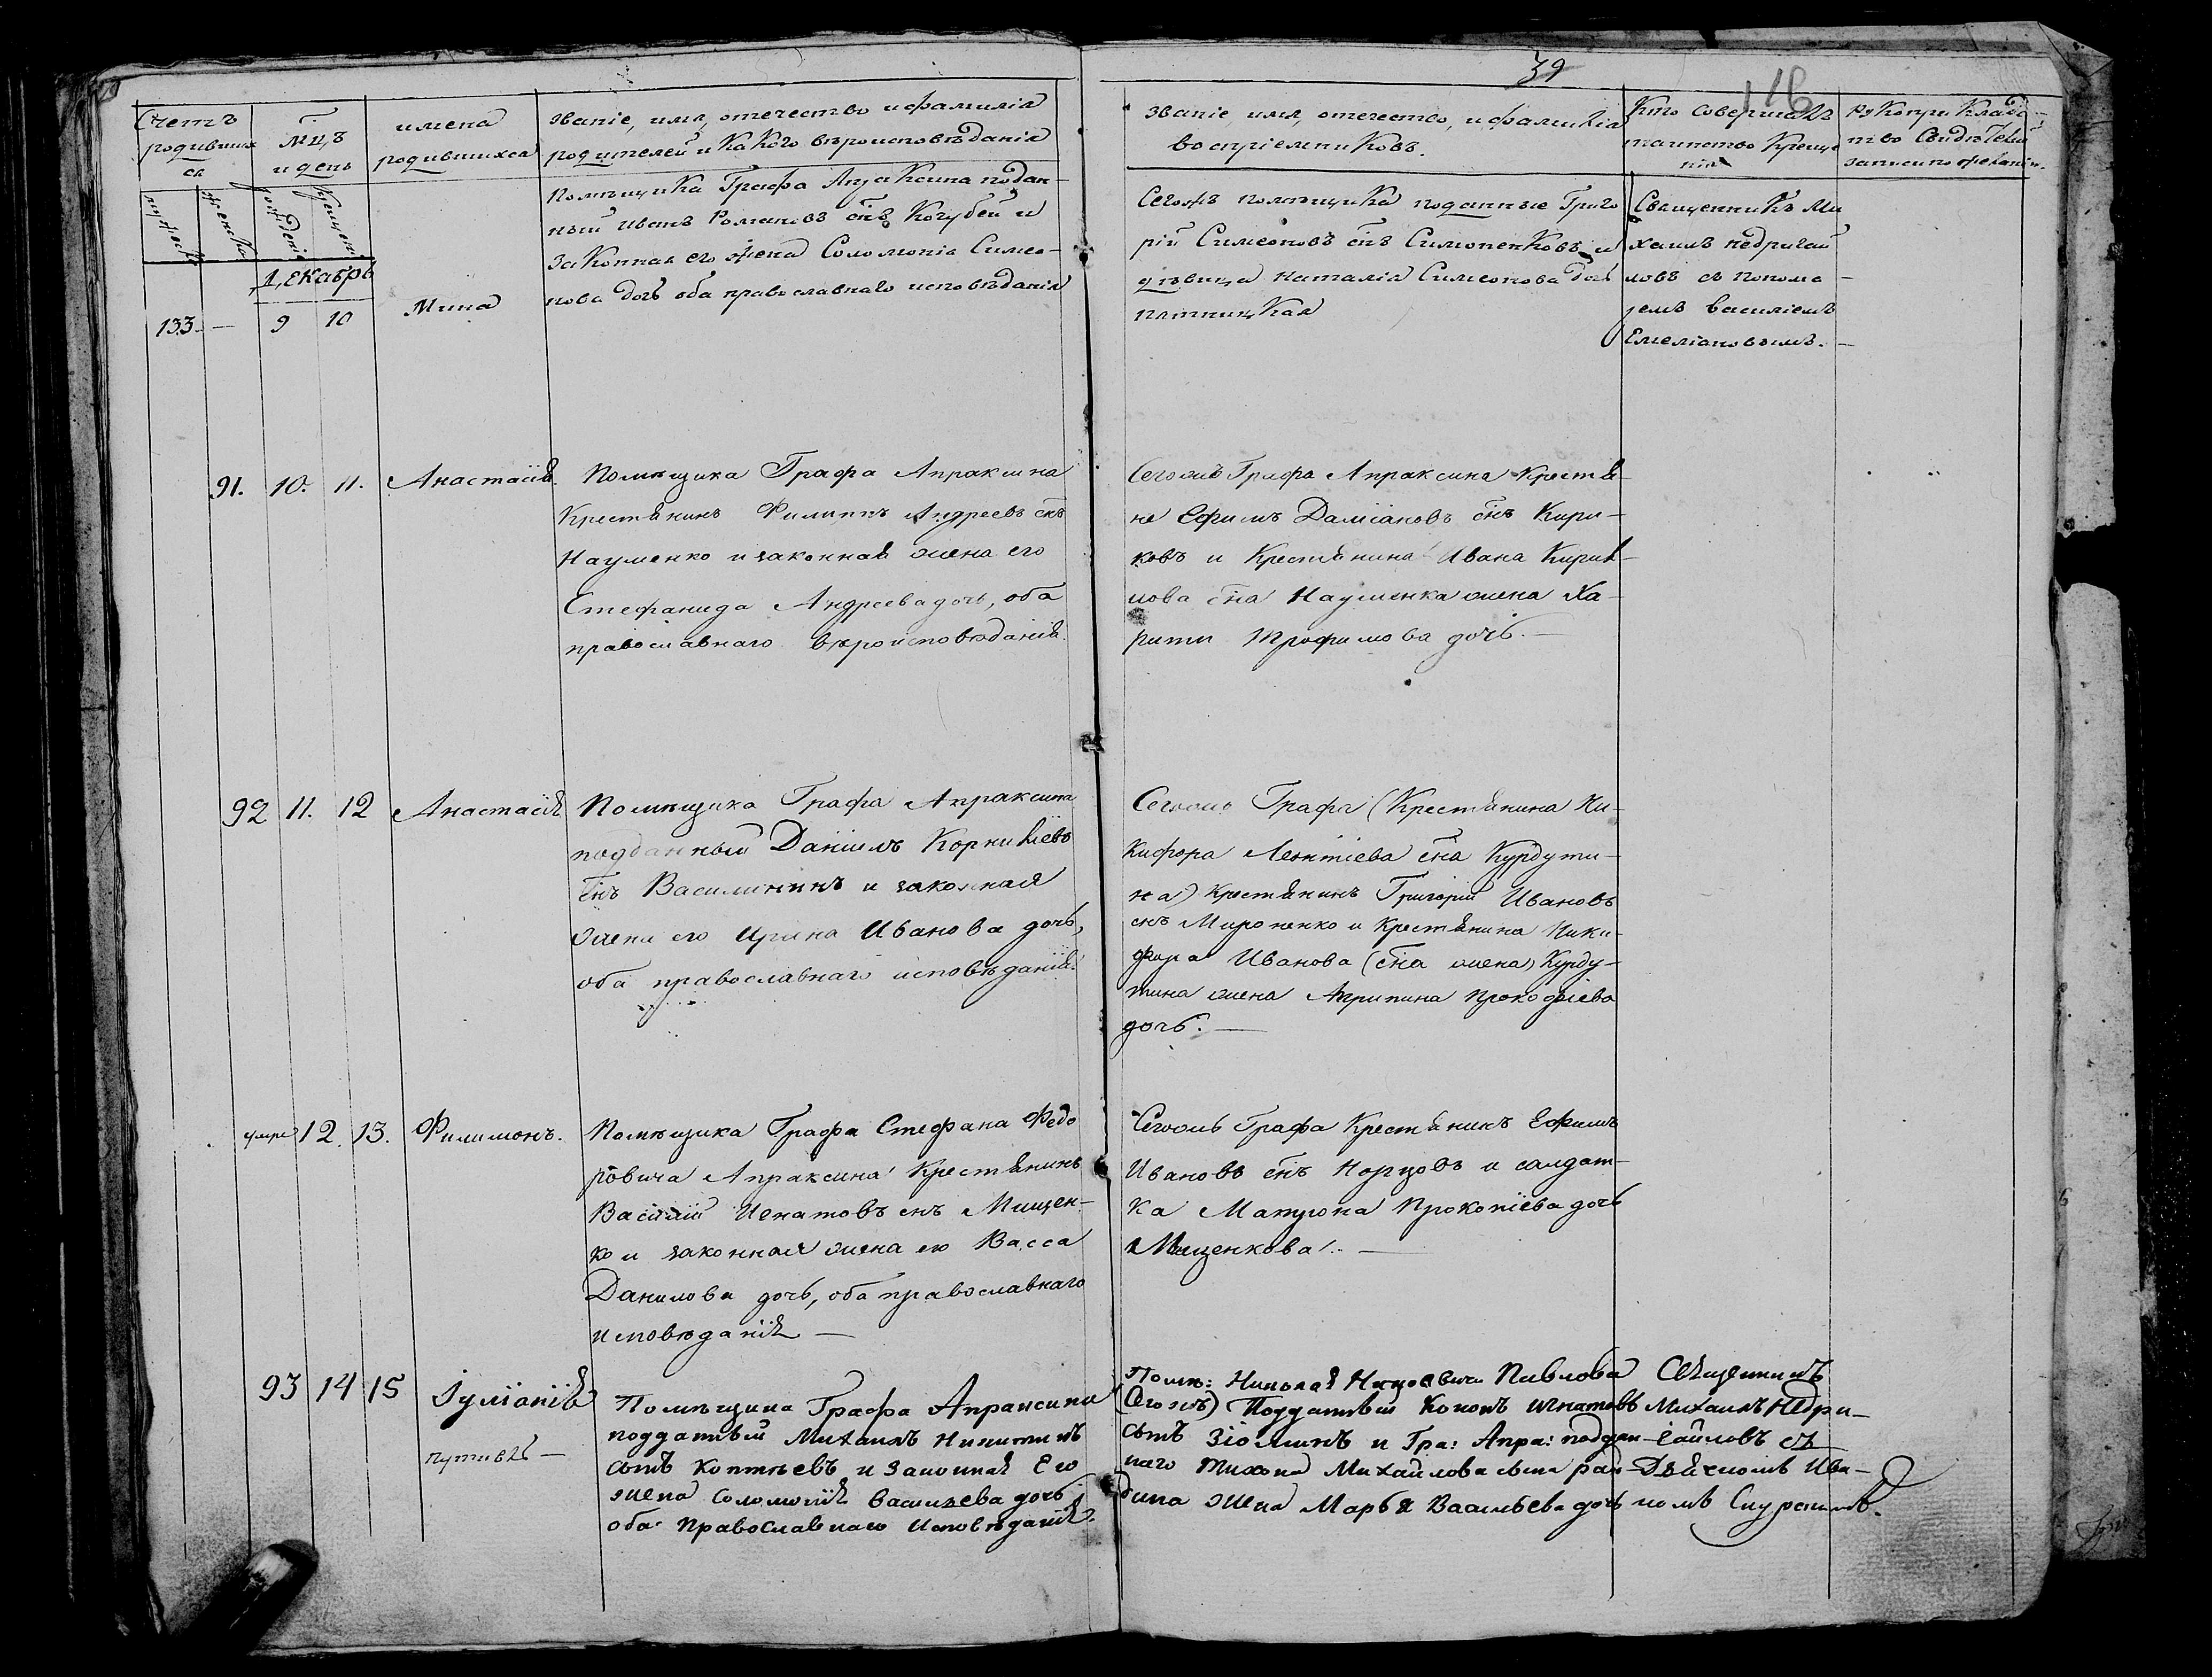 39
116
Счетъ
родивших
ся
Мц,ъ
и день
имена
родившихся
Званіе, имя, отечество и фамилія
родителей и какого вѣроисповѣданія
званіе, имя, отечество, и фамилія
воспріемниковъ.
Кто совершалъ
таинство Креще
нія
Декабрь
133 — 9 10
Мина
Помѣщика Графа Апраксина подан-
ный Иванъ Романовъ снъ Кочубей и
законная его жена Соломонія Симео-
нова дочь оба православнаго исповѣданія
Сегожъ помѣщика поданные Григо
рій Симеоновъ снъ Симоненковъ и
дѣвица Наталія Симеонова дочь
Священникъ Ми
хаилъ Недригай
ловъ съ понома-
ремъ Василіемъ
Емеліановымъ. —
91. 10. 11. Анастасія
Помѣщика Графа Апраксина
Крестянинъ Филиппъ Андреевъ снъ
Науменко и законная жена его
Стефанида Андреева дочь, оба
православнаго вѣроисповѣданія.
Сегожъ Графа Апраксина Крестя-
не Ефимъ Даміановъ снъ Кири-
ковъ и Крестянина Ивана Кирил-
лова сна Науменка жена Ха-
рити Трофимова дочь. —
92 11. 12 Анастасія
Помѣщика Графа Апраксина
подданный Даніилъ Корниліевъ
снъ Василининъ и законная
жена его Ирина Иванова дочь,
оба православнаго исповѣданія.
Сегожъ Графа (Крестянина Ни-
кифора Леонтіева сна Курдути-
на) Крестянинъ Григорій Ивановъ
снъ Мироненко и Крестянина Ники-
фора Иванова (сна жена) Курду-
тина жена Агрипина Прокофіева
дочь. —
умре 12. 13. Филимонъ.
Помѣщика Графа Стефана Федо
ровича Апраксина Крестянинъ
Василій Игнатовъ снъ Мищен-
ко и законная жена его Васса
Данилова дочь, оба православнаго
исповѣданія —
Сегожъ Графа Крестянинъ Ефимъ
Ивановъ снъ Норцовъ и салдат-
ка Матрона Прокопіева дочь
Мищенкова. —
93 14 15 Іуліанія
Путивль —
Помѣщика Графа Апраксина
подданный Михаилъ Никитинъ
сынъ Коптѣевъ и законная Его
жена Соломонія Васильева дочь
оба Православнаго Исповѣданія.
Помѣ: Николая Павлова
(Сегожъ) Подданный Кононъ Игнатовъ
сынъ Зіоминъ и Гра: Апра: поддан-
наго Тихона Михайлова сына ран-
дина жена Марья Васильева дочь
Священникъ
Михаилъ Недри-
гайловъ съ
Дьячкомъ Ива-
номъ